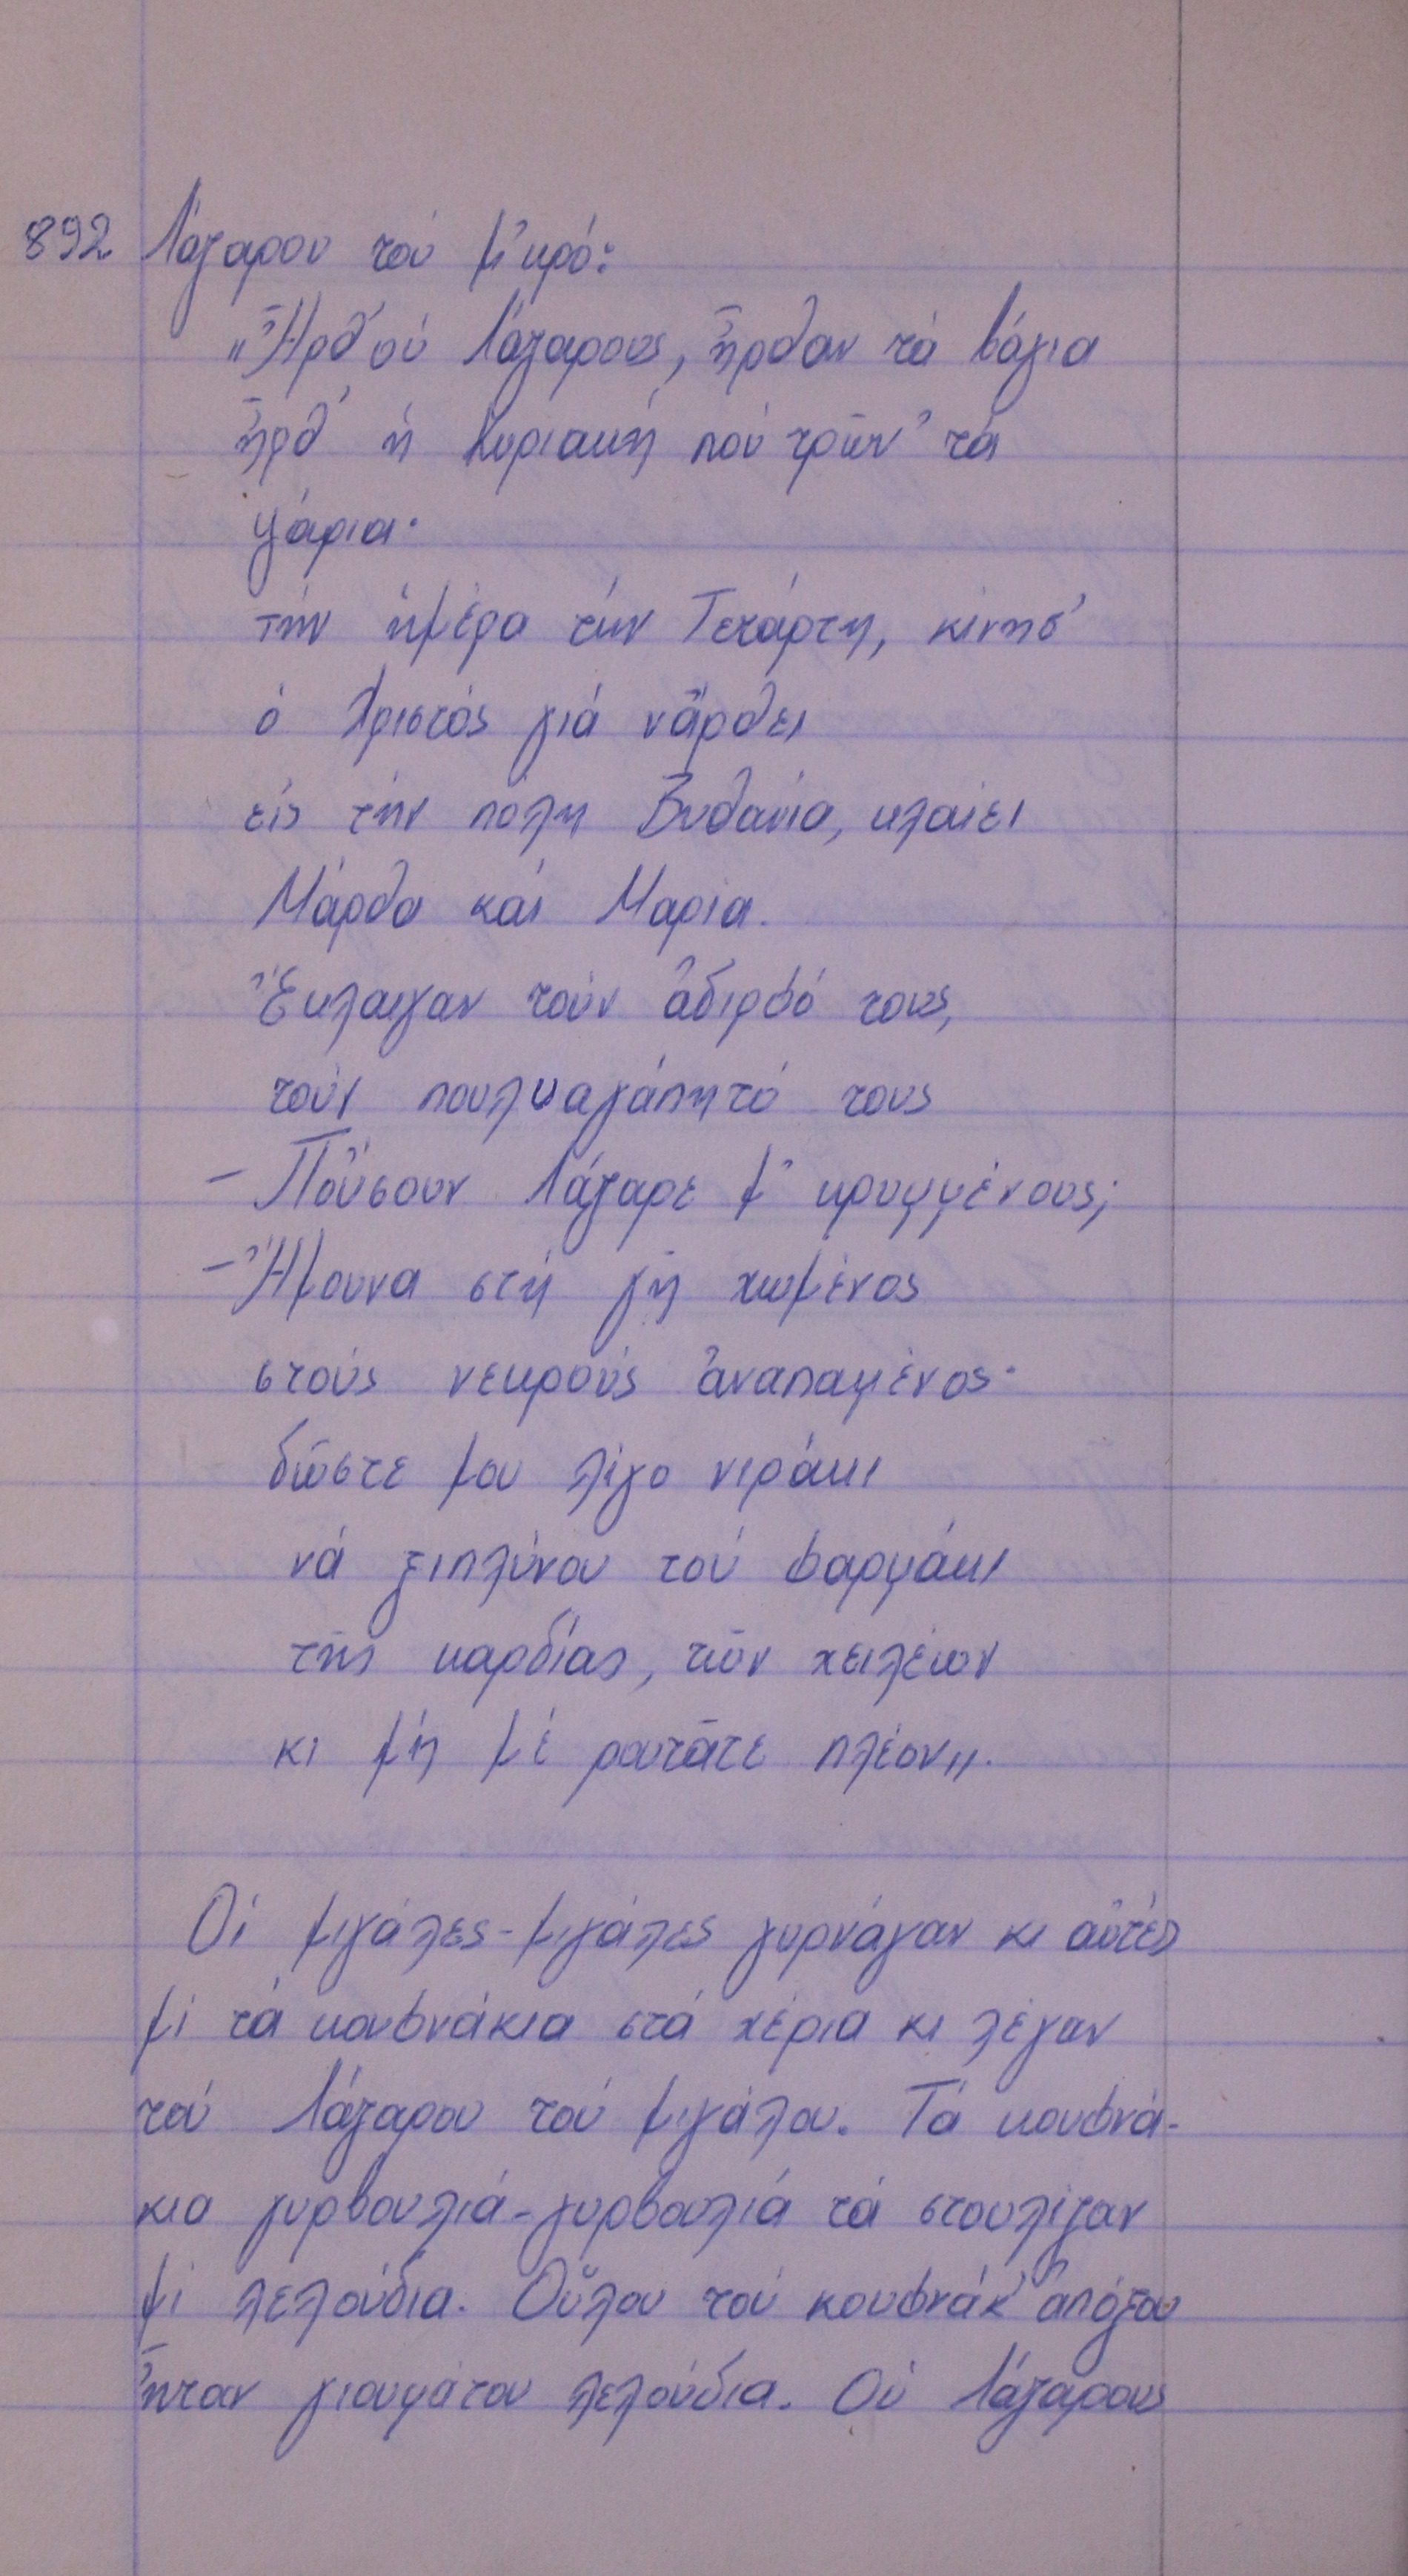 892 Λάζαρου τού μ'κρό:
„Ἦρθ' οὑ Λάζαρους, ἦρθαν τά βάγια
ἦρθ' ἡ Κυριακή πού τρῶν' τά
ψάρια·
τήν ἡμέρα τήν Τετάρτη, κίνησ'
ὁ Χριστός γιά νἄρθει
εἰς τήν πόλη Βυθανία, κλαίει
Μάρθα καί Μαρία.
Ἔκλαιγαν τούν ἀδιρφό τους,
τούν πουλυαγάπητό τους
- Ποὔσουν Λάζαρε μ' κρυμμένους;
- Ἤμουνα στή γῆ χωμένος
στούς νεκρούς ἀναπαμένος·
δῶστε μου λίγο νιράκι
νά ξιπλύνου τού φαρμάκι
τῆς καρδίας, τῶν χειλέων
κι μή μέ ρουτᾶτε πλέον„.
Οἱ μιγάλες-μιγάλες γυρνάγαν κι αὐτές
μί τά κουφνάκια στά χέρια κι λέγαν
τού Λάζαρου τού μιγάλου. Τά κουφνά-
κια γυρβουλιά-γυρβουλιά τά στουλίζαν
μί λελούδια. Οὕλου τού κουφνάκ' ἀπόξου
ἦταν γιουμάτου λελούδια. Οὑ Λάζαρους